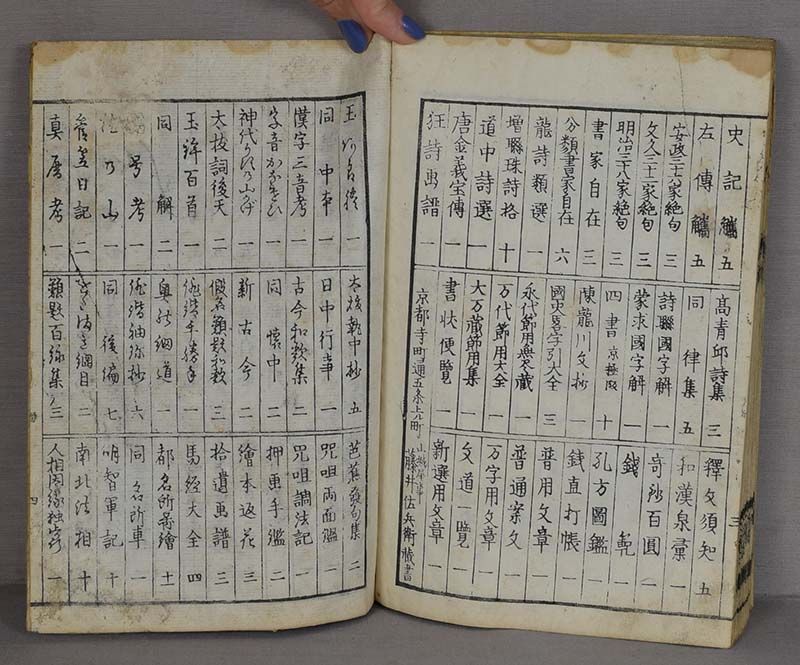 史記觿 五
左傳觿 五
安政三十六家絶句 三
文久二十六家絶句 三
明治三十八家絶句 三
書家自在 三
分類書家自在 六
龍詩類選 一
増聯珠詩格 十
道中詩選 一
唐金義宝傳 一
狂詩画譜 一
高青邱詩集 三
同律集 五
詩聯國字解 一
蒙求國字解 一
四書 十
陳龍川文抄 一
國史畧字引大全 三
永代節用無尽蔵 一
万代節用大全 一
大万蔵節用集 一
書状便覧 一
京都寺町通五条上ル町
釋文須知 五
和漢泉彙 一
奇鈔百圓 一
錢範 一
孔方圖鑑 一
錢直打帳 一
普用文章 一
普通案文 一
万字用文章 一
文道一覧 一
新選用文章 一
藤井佐兵衛蔵書
三
同中本 一
漢字三音考 一
字音かなづかひ 一
神代のまさ
大祓詞後天 二
玉鉾百首 一
同解 二
号考 一
乃山 一
菅笠日記 二
真暦考 一
大祓執中抄 五
日中行事 一
古今和歌集 二
同懐中 一
新古今 二
假名題歌和歌 三
俳諧手勝手 一
奥の細道 一
俳諧紬抄 六
同後編 七
綱目 二
類題百絲集 三
芭蕉發句集 二
咒咀両面鑑 一
咒咀調法記 一
押画手鑑 二
繪本返花 三
拾遺画譜 三
馬経大全 四
都名所画繪 十一
同名所車 一
明智軍記 十
南北法相 十
人相因縁独稽 一
四